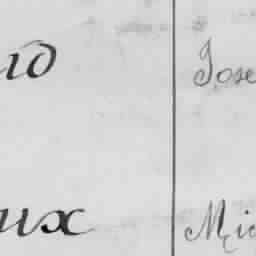 id Jose
ux Mic